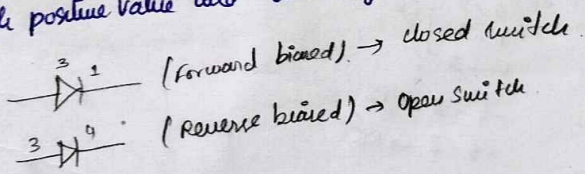 positive value
3 1 (Forward biased) → closed switch.
3 4 (Reverse biased) → Open switch.